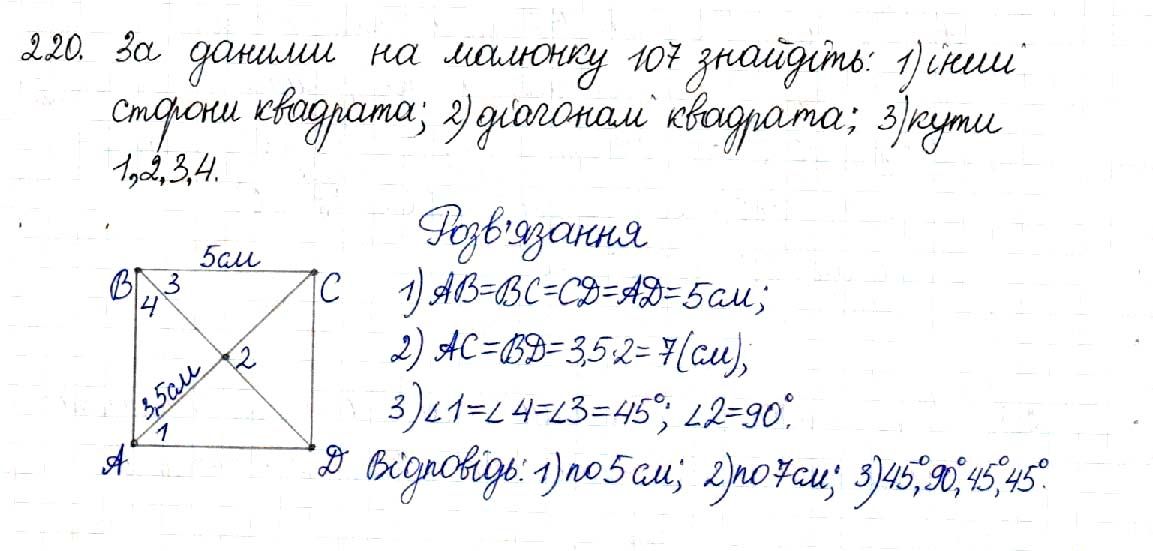 220. За даними на малюнку 107 знайдіть: 1) інші
сторони квадрата; 2) діагоналі квадрата; 3) кути
1, 2, 3, 4.
Розв'язання
5см
B 3
4
C
2
3,5см
1
A
D
1) AB=BC=CD=AD=5см;
2) AC=BD=3,5·2=7(см);
3) ∠1=∠4=∠3=45°; ∠2=90°.
Відповідь: 1) по 5 см; 2) по 7см; 3) 45°, 90°, 45°, 45°.